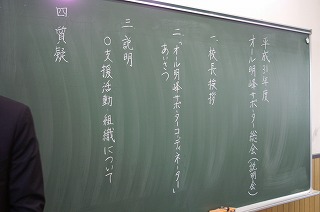 平成31年度
オール明峰サポーター総会(説明会)
一、校長挨拶
二、「オール明峰サポーターコーディネーター」
あいさつ
三、説明
○支援活動組織について
四、質疑